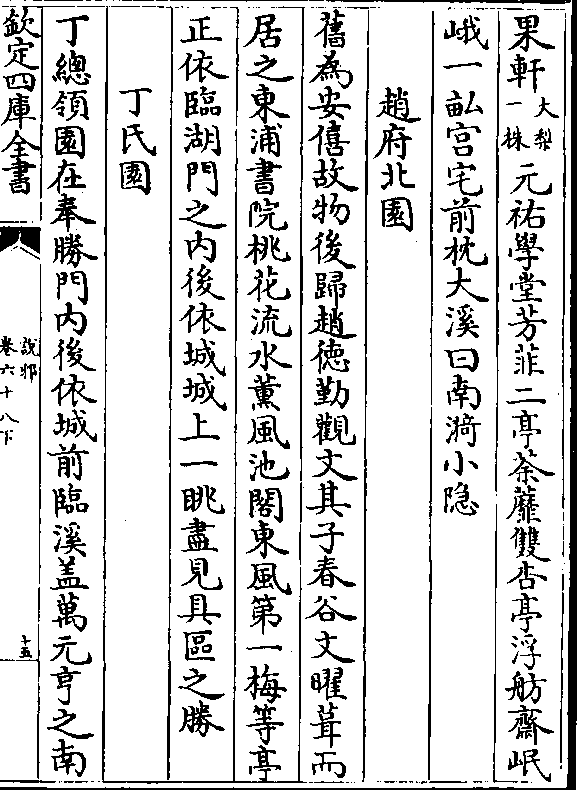 果軒大梨一株元祐學堂芳菲二亭荼䕷雙杏亭浮舫齋岷
峨一畝宫宅前枕大溪曰南漪小隐
趙府北園
舊為安僖故物後歸趙徳勤觀文其子春谷文曜葺而
居之東浦書院桃花流水薫風池閣東風第一梅等亭
正依臨湖門之内後依城城上一眺盡見具區之勝
丁氏園
丁總領園在奉勝門内後依城前臨溪盖萬元亨之南
欽定四庫全書
說郛
卷六十八下
十五